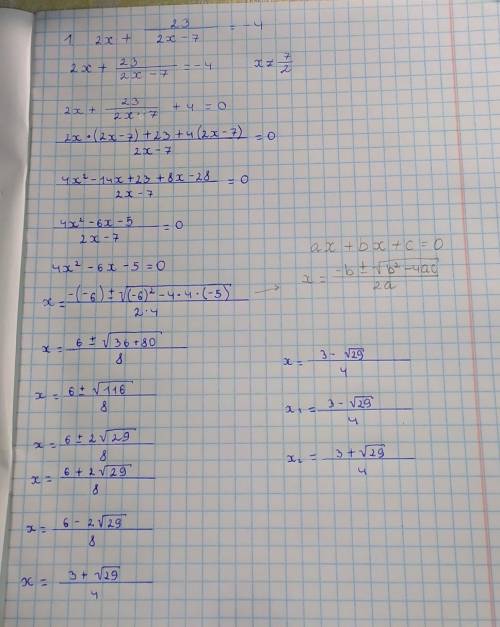 1 2x + 23/(2x-7) = -4
2x + 23/(2x-7) = -4 x ≠ 7/2
2x + 23/(2x-7) + 4 = 0
(2x•(2x-7)+23+4(2x-7))/(2x-7) = 0
(4x²-14x+23+8x-28)/(2x-7) = 0
(4x²-6x-5)/(2x-7) = 0
4x²-6x-5=0
x = (-(-6) ± √((-6)²-4•4•(-5)))/(2•4) →
x = (6 ± √(36+80))/8
x = (6 ± √116)/8
x = (6 ± 2√29)/8
x = (6 + 2√29)/8
x = (6 - 2√29)/8
x = (3 + √29)/4
ax + bx + c = 0
x = (-b ± √(b²-4ac))/(2a)
x = (3 - √29)/4
x₁ = (3 - √29)/4
x₂ = (3 + √29)/4